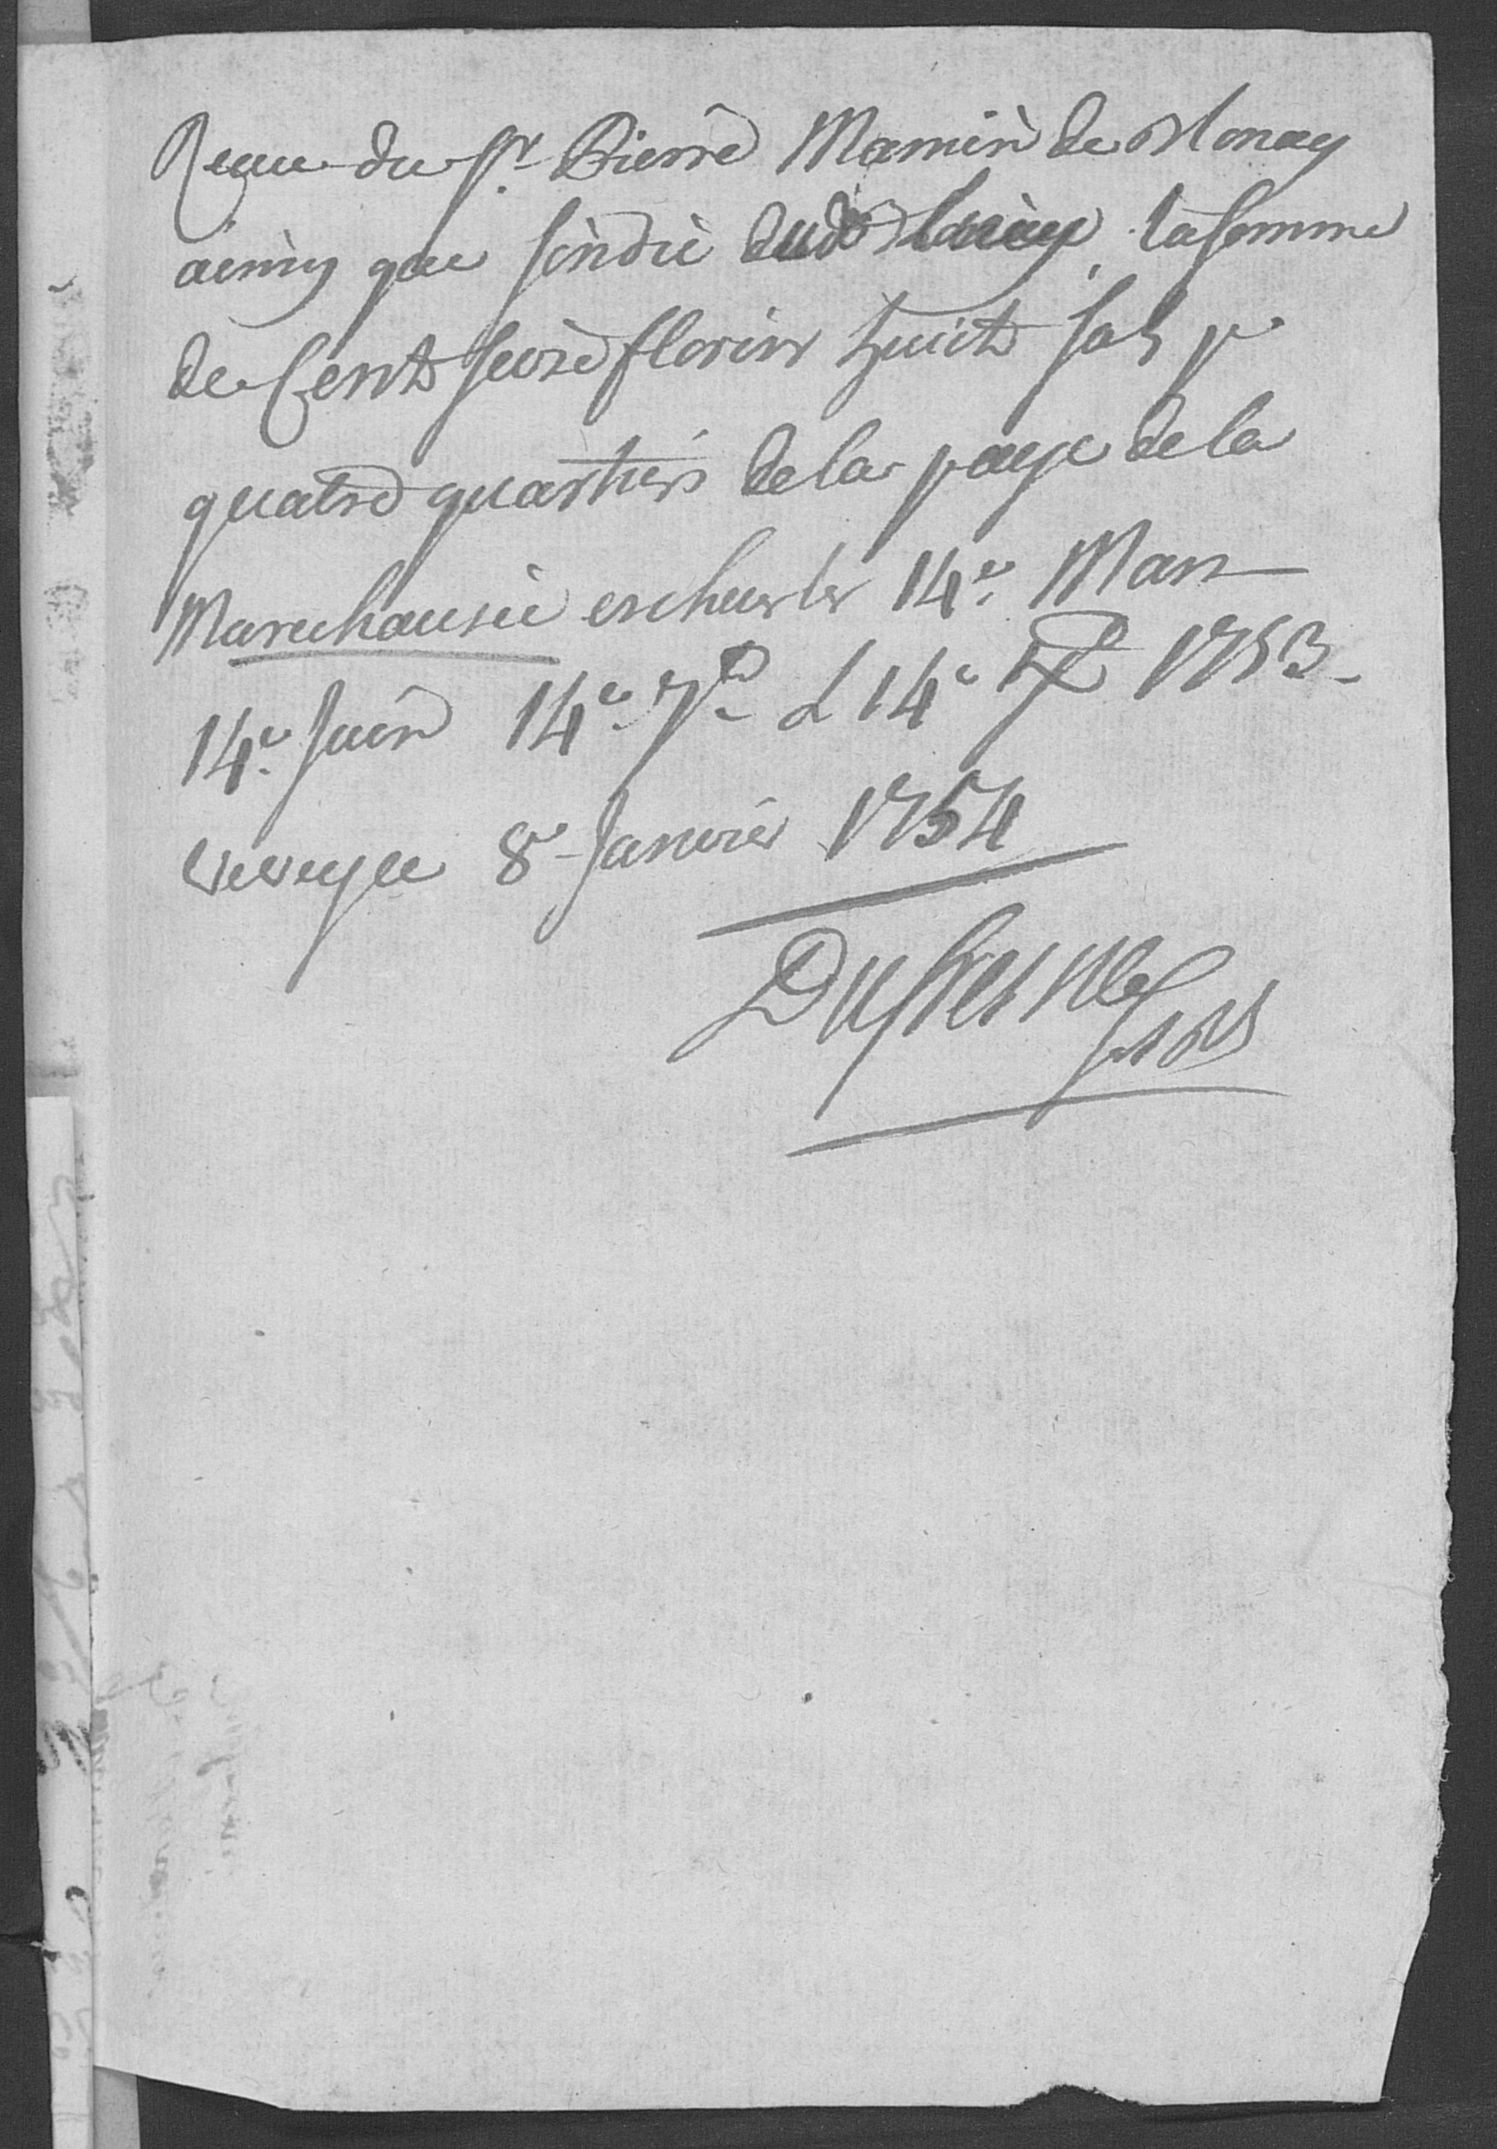 Reçeu du Sr. Pierre Mamin de Blonay
ainsy que sindic dud Blonay, la somme
de Cent seize florins huict sols pr
quatre quartiers de la paye de la
Marechausée escheus les 14e. Mars
14e. Juin 14e. 7e & 14e Xe 1753.
Veveyse 8e Janvier 1754
Dufresne